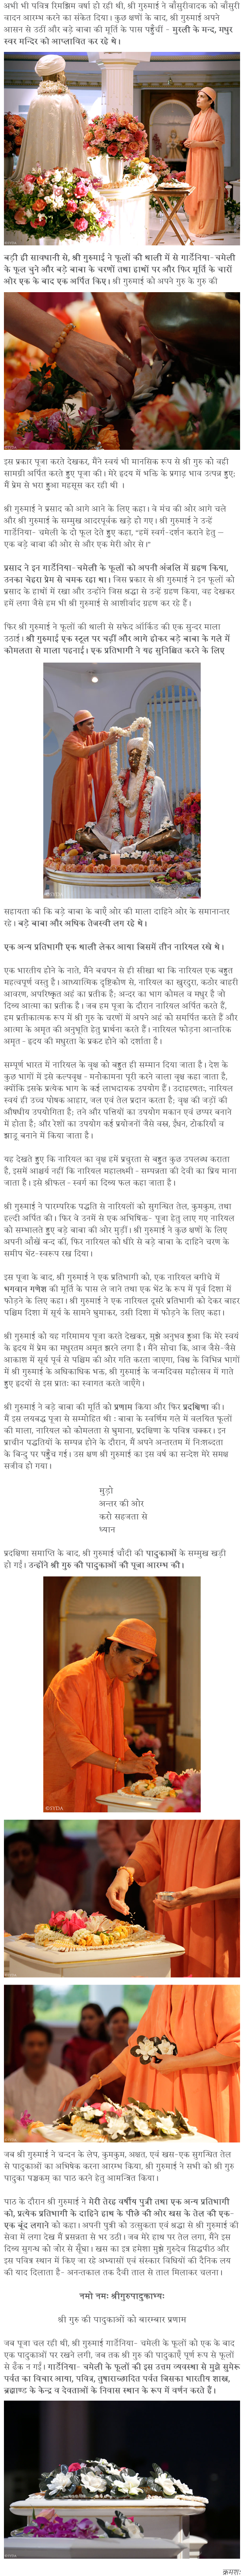 अभी भी पवित्र रिमझिम वर्षा हो रही थी, श्री गुरुमाई ने बाँसुरीवादक को बाँसुरी
वादन आरम्भ करने का संकेत दिया। कुछ क्षणों के बाद, श्री गुरुमाई अपने
आसन से उठीं और बड़े बाबा की मूर्ति के पास पहुँचीं - मुरली के मन्द, मधुर
स्वर मन्दिर को आप्लावित कर रहे थे।
बड़ी ही सावधानी से, श्री गुरुमाई ने फूलों की थाली में से गार्डेनिया- चमेली
के फूल चुने और बड़े बाबा के चरणों तथा हाथों पर और फिर मूर्ति के चारों
ओर एक के बाद एक अर्पित किए। श्री गुरुमाई को अपने गुरु के गुरु की
इस प्रकार पूजा करते देखकर, मैंने स्वयं भी मानसिक रूप से श्री गुरु को वही
सामग्री अर्पित करते हुए पूजा की। मेरे हृदय में भक्ति के प्रगाढ़ भाव उत्पन्न हुए;
मैं प्रेम से भरा हुआ महसूस कर रही थी ।
श्री गुरुमाई ने प्रसाद को आगे आने के लिए कहा। वे मंच की ओर आगे चले
और श्री गुरुमाई के सम्मुख आदरपूर्वक खड़े हो गए। श्री गुरुमाई ने उन्हें
गार्डेनिया- चमेली के दो फूल देते हुए कहा, “हमें स्वर्ग-दर्शन कराने हेतु —
एक बड़े बाबा की ओर से और एक मेरी ओर से।”
प्रसाद ने इन गार्डेनिया- चमेली के फूलों को अपनी अंजलि में ग्रहण किया,
उनका चेहरा प्रेम से चमक रहा था। जिस प्रकार से श्री गुरुमाई ने इन फूलों को
प्रसाद के हाथों में रखा और उन्होंने जिस श्रद्धा से उन्हें ग्रहण किया, वह देखकर
हमें लगा जैसे हम भी श्री गुरुमाई से आशीर्वाद ग्रहण कर रहे हैं।
फिर श्री गुरुमाई ने फूलों की थाली से सफ़ेद ऑर्किड की एक सुन्दर माला
उठाई। श्री गुरुमाई एक स्टूल पर चढ़ीं और आगे होकर बड़े बाबा के गले में
कोमलता से माला पहनाई। एक प्रतिभागी ने यह सुनिश्चित करने के लिए
सहायता की कि बड़े बाबा के बाएँ ओर की माला दाहिने ओर के समानान्तर
रहे। बड़े बाबा और अधिक तेजस्वी लग रहे थे।
एक अन्य प्रतिभागी एक थाली लेकर आया जिसमें तीन नारियल रखे थे।
एक भारतीय होने के नाते, मैंने बचपन से ही सीखा था कि नारियल एक बहुत
महत्वपूर्ण वस्तु है। आध्यात्मिक दृष्टिकोण से, नारियल का खुरदुरा, कठोर बाहरी
आवरण, अपरिष्कृत अहं का प्रतीक है; अन्दर का भाग कोमल व मधुर है जो
दिव्य आत्मा का प्रतीक है। जब हम पूजा के दौरान नारियल अर्पित करते हैं,
हम प्रतीकात्मक रूप में श्री गुरु के चरणों में अपने अहं को समर्पित करते हैं और
आत्मा के अमृत की अनुभूति हेतु प्रार्थना करते हैं। नारियल फोड़ना आन्तरिक
अमृत - हृदय की मधुरता के प्रकट होने को दर्शाता है।
सम्पूर्ण भारत में नारियल के वृक्ष को बहुत ही सम्मान दिया जाता है। देश के
कुछ भागों में इसे कल्पवृक्ष - मनोकामना पूरी करने वाला वृक्ष कहा जाता है,
क्योंकि इसके प्रत्येक भाग के कई लाभदायक उपयोग हैं। उदाहरणतः, नारियल
स्वयं ही उच्च पोषक आहार, जल एवं तेल प्रदान करता है; वृक्ष की जड़ों की
औषधीय उपयोगिता है; तने और पत्तियों का उपयोग मकान एवं छप्पर बनाने
में होता है; और रेशों का उपयोग कई प्रयोजनों जैसे वस्त्र, ईंधन, टोकरियाँ व
झाड़ू बनाने में किया जाता है।
यह देखते हुए कि नारियल का वृक्ष हमें प्रचुरता से बहुत कुछ उपलब्ध कराता
है, इसमें आश्चर्य नहीं कि नारियल महालक्ष्मी - सम्पन्नता की देवी का प्रिय माना
जाता है। इसे श्रीफल - स्वर्ग का दिव्य फल कहा जाता है।
श्री गुरुमाई ने पारम्परिक पद्धति से नारियलों को सुगन्धित तेल, कुमकुम, तथा
हल्दी अर्पित की। फिर वे उनमें से एक अभिषिक्त- पूजा हेतु लाए गए नारियल
को सम्भालते हुए बड़े बाबा की ओर मुड़ीं। श्री गुरुमाई ने कुछ क्षणों के लिए
अपनी आँखें बन्द कीं, फिर नारियल को धीरे से बड़े बाबा के दाहिने चरण के
समीप भेंट-स्वरूप रख दिया।
इस पूजा के बाद, श्री गुरुमाई ने एक प्रतिभागी को, एक नारियल बगीचे में
भगवान गणेश की मूर्ति के पास ले जाने तथा एक भेंट के रूप में पूर्व दिशा में
फोड़ने के लिए कहा। श्री गुरुमाई ने एक नारियल दूसरे प्रतिभागी को देकर बाहर
पश्चिम दिशा में सूर्य के सामने घुमाकर, उसी दिशा में फोड़ने के लिए कहा।
श्री गुरुमाई को यह गरिमामय पूजा करते देखकर, मुझे अनुभव हुआ कि मेरे स्वयं
के हृदय में प्रेम का मधुरतम अमृत झरने लगा है। मैंने सोचा कि, आज जैसे-जैसे
आकाश में सूर्य पूर्व से पश्चिम की ओर गति करता जाएगा, विश्व के विभिन्न भागों
में श्री गुरुमाई के अधिकाधिक भक्त, श्री गुरुमाई के जन्मदिवस महोत्सव में गाते
हुए हृदयों से इस प्रातः का स्वागत करते जाएँगे।
श्री गुरुमाई ने बड़े बाबा की मूर्ति को प्रणाम किया और फिर प्रदक्षिणा की।
मैं इस लयबद्ध पूजा से सम्मोहित थी : बाबा के स्वर्णिम गले में वलयित फूलों
की माला, नारियल को कोमलता से घुमाना, प्रदक्षिणा के पवित्र चक्कर। इन
प्राचीन पद्धतियों के सम्पन्न होने के दौरान, मैं अपने अन्तरतम में निःशब्दता
के बिन्दु पर पहुँच गई। उस क्षण श्री गुरुमाई का इस वर्ष का सन्देश मेरे समक्ष
सजीव हो गया।
मुड़ो
अन्तर की ओर
करो सहजता से
ध्यान
प्रदक्षिणा समाप्ति के बाद, श्री गुरुमाई चाँदी की पादुकाओं के सम्मुख खड़ी
हो गईं। उन्होंने श्री गुरु की पादुकाओं की पूजा आरम्भ की।
©SYDA
जब श्री गुरुमाई ने चन्दन के लेप, कुमकुम, अक्षत, एवं खस-एक सुगन्धित तेल
से पादुकाओं का अभिषेक करना आरम्भ किया, श्री गुरुमाई ने सभी को श्री गुरु
पादुका पञ्चकम् का पाठ करने हेतु आमन्त्रित किया।
पाठ के दौरान श्री गुरुमाई ने मेरी तेरह वर्षीय पुत्री तथा एक अन्य प्रतिभागी
को, प्रत्येक प्रतिभागी के दाहिने हाथ के पीछे की ओर खस के तेल की एक-
एक बूंद लगाने को कहा। अपनी पुत्री को उत्सुकता एवं श्रद्धा से श्री गुरुमाई की
सेवा में लगा देख मैं प्रसन्नता से भर उठी। जब मेरे हाथ पर तेल लगा, मैंने इस
दिव्य सुगन्ध को जोर से सूँघा। खस का इत्र हमेशा मुझे गुरुदेव सिद्धपीठ और
इस पवित्र स्थान में किए जा रहे अभ्यासों एवं संस्कार विधियों की दैनिक लय
की याद दिलाता है- अनन्तकाल तक दैवी ताल से ताल मिलाकर चलना।
नमो नमः श्रीगुरुपादुकाभ्यः
श्री गुरु की पादुकाओं को बारम्बार प्रणाम
जब पूजा चल रही थी, श्री गुरुमाई गार्डेनिया- चमेली के फूलों को एक के बाद
एक पादुकाओं पर रखने लगीं, जब तक श्री गुरु की पादुकाएँ पूर्ण रूप से फूलों
से ढँक न गईं। गार्डेनिया- चमेली के फूलों की इस उत्तम व्यवस्था से मुझे सुमेरू
पर्वत का विचार आया, पवित्र, तुषाराच्छादित पर्वत जिसका भारतीय शास्त्र,
ब्रह्माण्ड के केन्द्र व देवताओं के निवास स्थान के रूप में वर्णन करते हैं।
क्रमशः